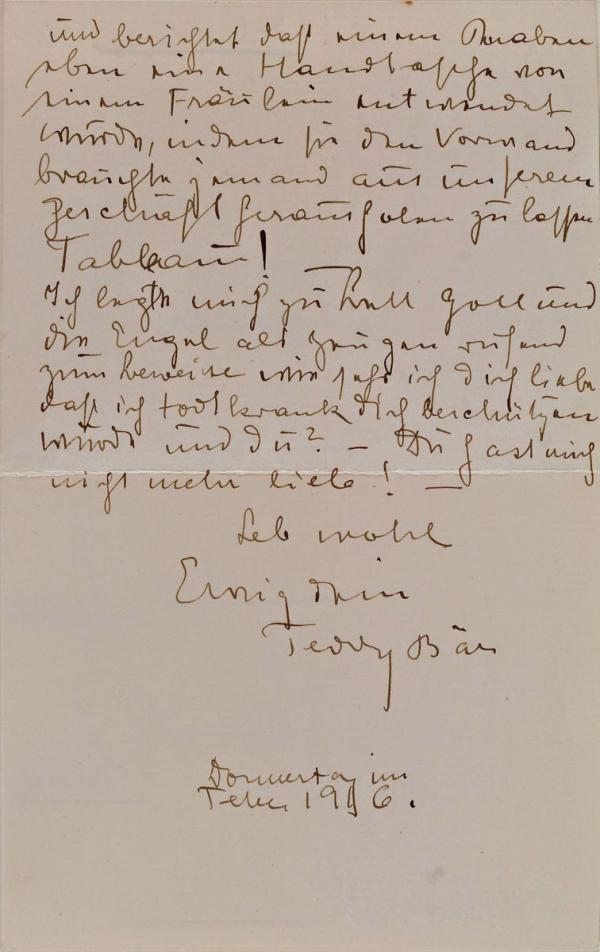 und berichtet daß einem Knaben
eben eine Handtasche von
einem Fräulein entwendet
würde, indem sie den Vorwand
brauchte jemand aus unserem
Geschäft herausholen zu lassen
Tableau!
Ich legte mich zu Bett Gott und
die Engel als Zeugen rufend
zum beweise wie sehr ich dich liebe
daß ich todtkrank dich beschützen
würde und du? — Du hast mich
nicht mehr liebe! —
Leb wohl
Ewig dein
Teddy Bär
Donnerstag im
1916.